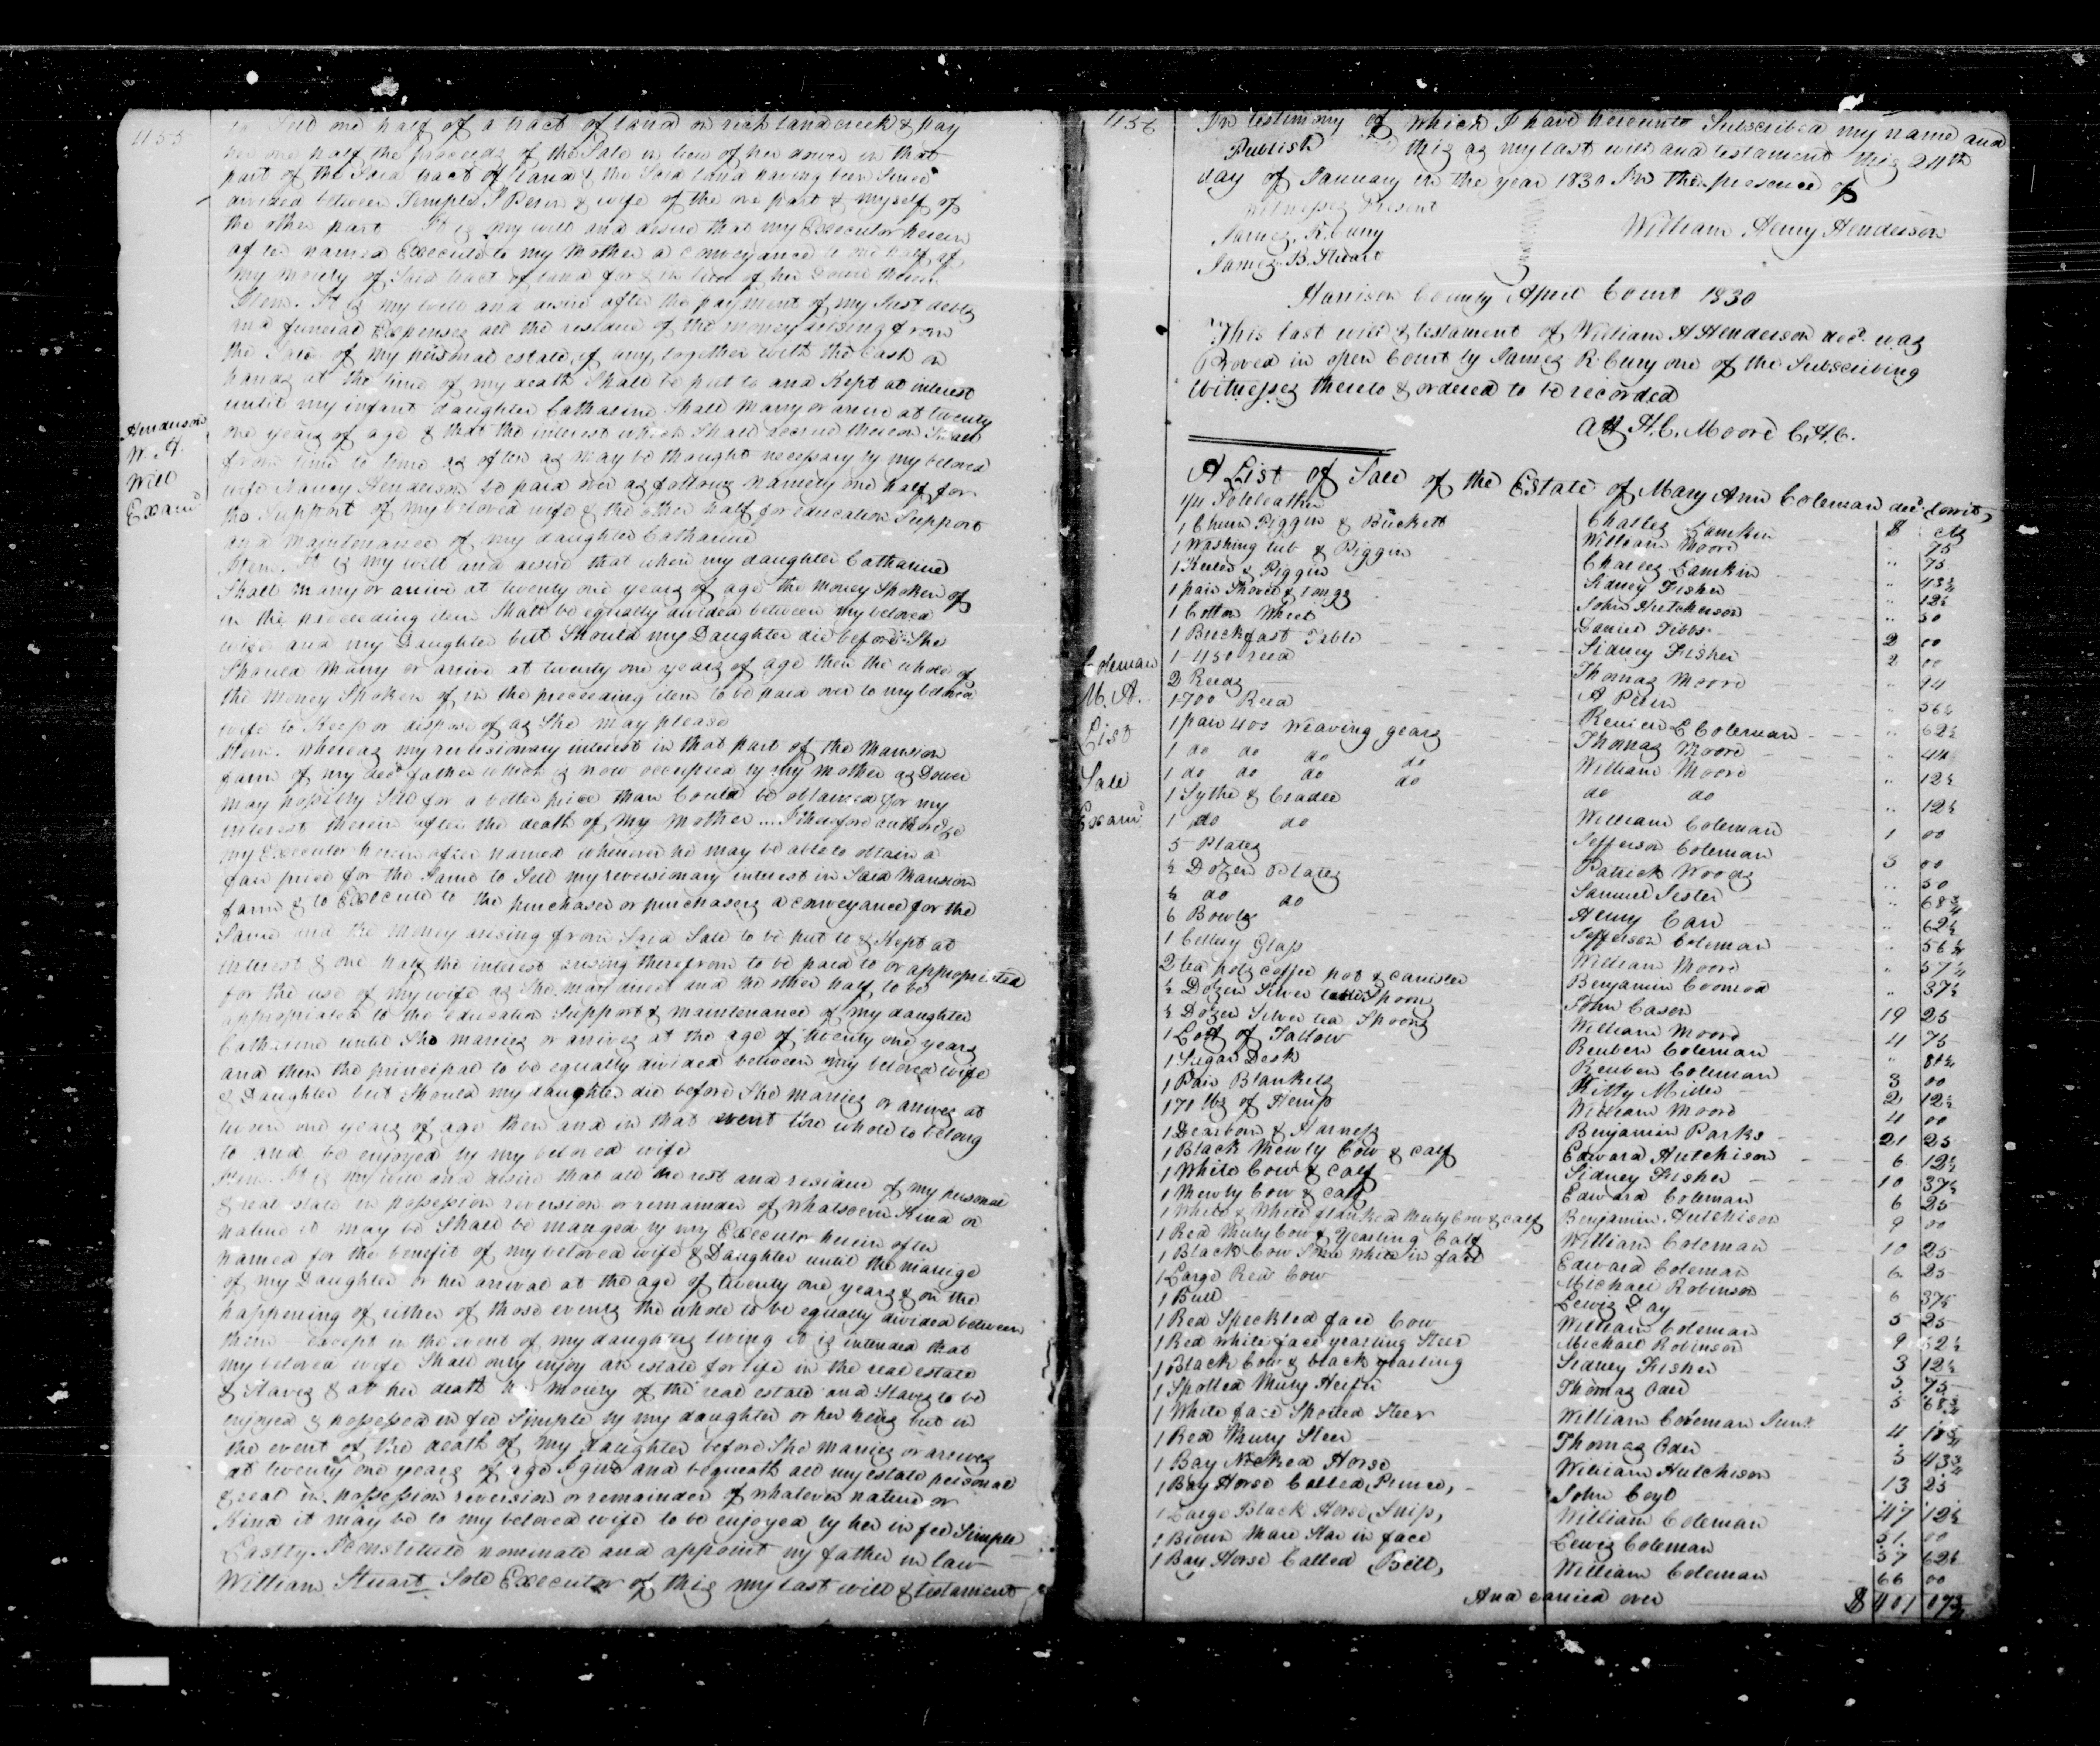 455
to Sell one half of a tract of land on rich land creek & pay
her one half the proceeds of the Sale in lieu of her dower in that
part of the Said tract of land & the Said land having been Since
divided between Temple & wife of the one part & myself of
the other part It is my will and desire that my Executor herein
after named Execute to my Mother a conveyance to one half of
my moiety of Said tract of land for & in lieu of her Dower therein
Item. It is my will and desire after the payment of my Just debts
and funeral Expenses all the residue of the money arising from
the Sale of my personal estate, if any, together with the Cash on
hand at the time of my death Shall be put to and Kept at interest
until my infant daughter Catharine Shall Marry or arive at twenty
one years of age & that the interest which Shall accrue thereon Shall
from time to time as often as may be thought necessary by my beloved
wife Nancy Henderson be paid over as follows namely one half for
the Support of my beloved wife & the other half for education Support
and maintenance of my daughter Catharine
Henderson
W. H.
Will
Examd
Item. It is my will and desire that when my daughter Catharine
Shall marry or arive at twenty one years of age the money Spoken of
in the preceeding item Shall be equally divided between my beloved
wife and my Daughter but Should my Daughter die before She
Should Marry or arive at twenty one years of age then the whole of
the Money Spoken of in the preceeding item to be paid over to my beloved
wife to Keep or dispose of as She may please
Item. Whereas my reversionary interest in that part of the Mansion
farm of my decd father which is now occupied by my Mother as Dower
may possibly Sell for a better price than Could be obtained for my
interest therein after the death of my Mother ... I therefore authorize
my Executor herein after named whenever he may be able to obtain a
fair price for the Same to Sell my reversionary interest in Said Mansion
farm & to Execute to the purchaser or purchasers a conveyance for the
Same and the Money arising from Said Sale to be put to & Kept at
interest & one half the interest arising therefrom to be paid to or appropriated
for the use of my wife as She may direct and the other half to be
appropriated to the education Support & maintenance of my daughter
Catharine until She marries or arives at the age of twenty one years
and then the principal to be equally divided between my beloved wife
& Daughter but Should my daughter die before She marries or arives at
twenty one years of age then and in that event the whole to belong
to and be enjoyed by my beloved wife
Item. It is my will and desire that all the rest and residue of my personal
& real estate in possession reversion or remainder of whatsoever Kind or
nature it may be Shall be manged by my Executor herein after
named for the benefit of my beloved wife & Daughter until the marige
of my Daughter or her arrival at the age of twenty one years & on the
happening of either of those events the whole to be equally divided between
them except in the event of my daughters living it is intended that
my beloved wife Shall only enjoy an estate for life in the real estate
& Slaves & at her death her Moiety of the real estate and Slaves to be
enjoyed & possessed in fee Simple by my daughter or her heirs but in
the event of the death of my daughter before She marries or arives
at twenty one years of age I give and bequeath all my estate personal
& real in possession reversion or remainder of whatever nature or
Kind it may be to my beloved wife to be enjoyed by her in fee Simple
Lastly. I constitute nominate and appoint my father in law
William Stuart Sole Executor of this my last will & testament
456
In testimony of which I have hereunto Subscribed my name and
Publish this as my last will and testament this 24th
day of January in the year 1830 In the presence of
Witnesses Present
James R. Curry
James B. Stuart
William Henry Henderson
Harrison County April Court 1830
This last will & testament of William H Henderson decd. was
Proved in open Court by James R Curry one of the Subscribing
Witnesses thereto & ordered to be recorded
Att H. C. Moore C.H.C.
A List of Sale of the Estate of Mary Ann Coleman decd. towit,
Coleman
M. A.
List
Sale
Examd
$ Cts
Soleleather Charles Lamkin 75
1 Churn Piggin & Buckett William Moore 75
1 Washing tub & Piggin Charles Lamkin 43¾
1 Keeler & Piggin Sidney Fisher 12½
1 pair Shovel & tongs John Hutcherson 50
1 Cotton Wheel Daniel Tibbs 2 00
1 Breckfast Table Sidney Fisher 2 00
1 - 450 reed Thomas Moore 94
2 Reeds A Perin 56¼
1 - 700 Reed L Coleman 62½
1 pair 400 Weaving gears Thomas Moore 44
1 do do do do William Moore 12½
1 do do do do do do 12½
1 Sythe & Cradle William Coleman 1 00
1 do do Jefferson Coleman 3 00
5 Plates Patrick Woods 50
½ Dozen Plates Samuel 68¾
½ do do Henry Carr 62½
6 Bowls Jefferson Coleman 56¼
1 Cellery Glass William Moore
2 tea pots coffee pot & canister Benjamin 37½
½ Dozen Silver table Spoons John Cason 19 25
½ Dozen Silver tea Spoons William Moore 4 75
1 Lott of Tallow Reuben Coleman 81¼
1 Sugar Desk Reuben Coleman 3 00
1 Pair Blankets Kitty Miller 2 12½
171 lbs of Hemp William Moore 4 00
1 Dearborn & Harness Benjamin Parks 21 25
1 Black Mewly Cow & calf Edward Hutchison 6 12½
1 White Cow & Calf Sidney Fisher 10 37½
1 Mewly Cow & calf Edward Coleman 6 25
1 White & White flanked Muly Cow & calf Benjamin Hutchison 9 00
1 Red Muly Cow & Yearling Calf William Coleman 10 25
1 Black Cow Some White in face Edward Coleman 6 25
1 Large Red Cow Michael Robinson 6 37½
1 Bull Lewis Day 5 25
1 Red Speckled face Cow William Coleman 9 62½
1 Red white face yearling Steer Michael Robinson 3 12½
1 Black Cow & black yearling Sidney Fisher 75
1 Spotted Muly Heifer Thomas Oder 5 68¾
1 White face Spotted Steer William Coleman Junr. 4 18¾
1 Red Muly Steer Thomas Oder 43¾
1 Bay Nicked Horse William Hutchison 13 25
1 Bay Horse Called Prince, John Coyl 47 12½
1 Large Black Horse, Snip, William Coleman 51. 00
1 Brown Mare Star in face Lewis Coleman 37 62½
1 Bay Horse Called Bill, William Coleman 66 00
And carried over $401 07¾